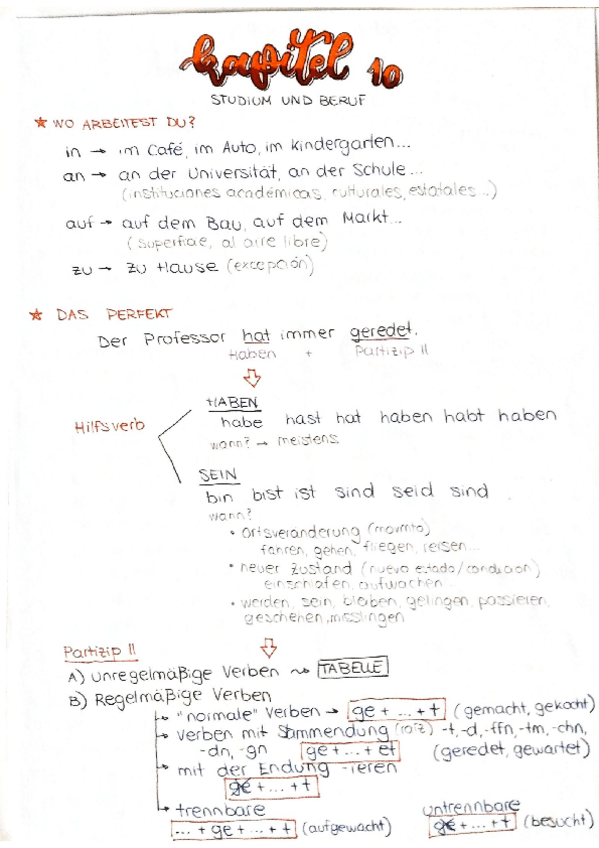 Kapitel 10
STUDIUM UND BERUF
★ WO ARBEITEST DU?
in → im Café, im Auto, im Kindergarten...
an → an der Universität, an der Schule...
(instituciones académicas, culturales, estatales...)
auf → auf dem Bau, auf dem Markt...
(superficie, al aire libre)
zu → zu Hause (excepción)
★ DAS PERFEKT
Der Professor hat immer geredet.
Haben + Partizip II
HABEN
habe hast hat haben habt haben
Hilfsverb
wann? → meistens
SEIN
bin bist ist sind seid sind
wann?
• Ortsveränderung (movmto)
fahren, gehen, fliegen, reisen...
• neuer Zustand (nuevo estado/condición)
einschlafen, aufwachen...
• werden, sein, bleiben, gelingen, passieren,
geschehen, misslingen
Partizip II
A) Unregelmäßige Verben ~> TABELLE
B) Regelmäßige Verben
→ "normale" Verben → ge + ... + t (gemacht, gekocht)
→ verben mit Stammendung (raíz) -t, -d, -ffn, -tm, -chn,
-dn, -gn ge + ... + et (geredet, gewartet)
→ mit der Endung -ieren
ge + ... + t
→ trennbare untrennbare
... + ge + ... + t (aufgewacht) ge + ... + t (besucht)